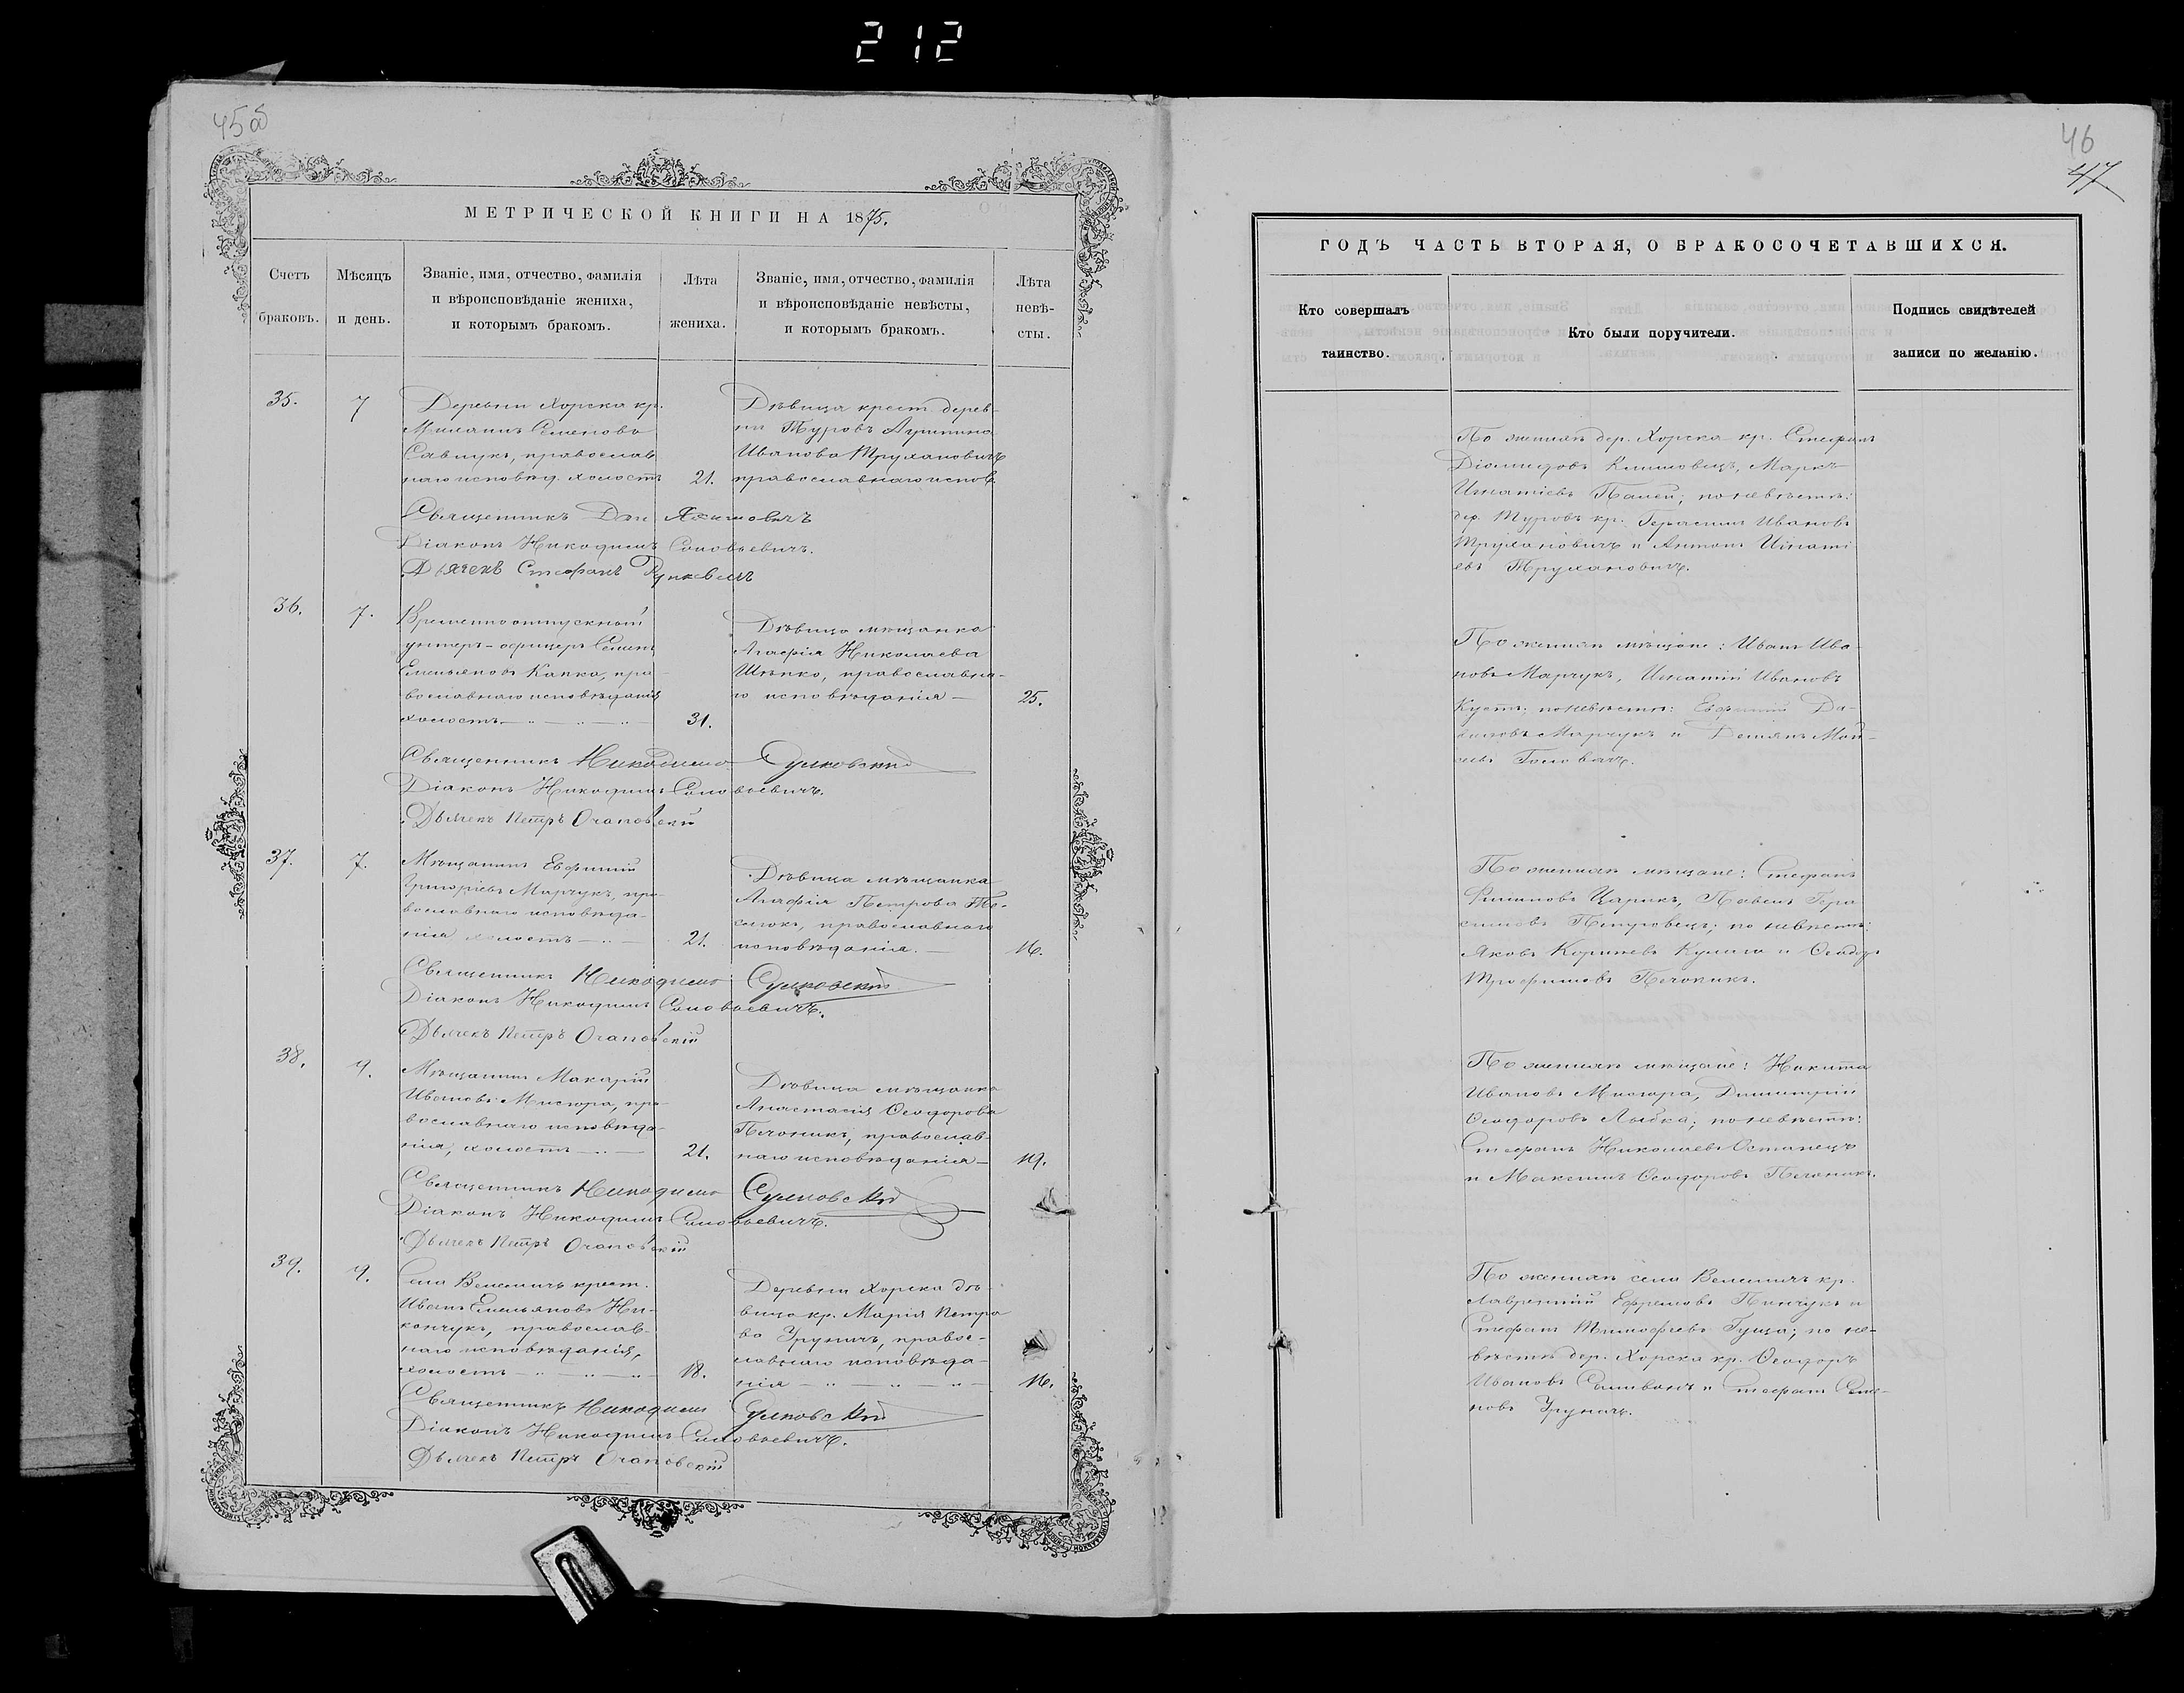 212
45об
МЕТРИЧЕСКОЙ КНИГИ НА 1875.
Счетъ браковъ.
Мѣсяцъ и день.
Званіе, имя, отчество, фамилія
и вѣроисповѣданіе жениха,
и которымъ бракомъ.
Лѣта жениха.
Званіе, имя, отчество, фамилія
и вѣроисповѣданіе невѣсты,
и которымъ бракомъ.
Лѣта невѣ-
сты.
35.
7
Деревни Хорска кр.
Семеновъ
Савчукъ, православ
наго исповѣд. холостъ
21.
Дѣвица крест. дерев-
ни Туровъ
Иванова Трухановичъ
православнаго испов.
Священникъ
Діаконъ Никодимъ Соловьевичъ.
Дьячекъ Стефанъ
36.
7.
Временноотпускной
унтеръ-офицеръ Семенъ
Емельяновъ Капка, пра-
вославнаго исповѣданія
холостъ
31.
Дѣвица мѣщанка
Агафія Николаева
православна-
го исповѣданія
25.
Священникъ Никодимъ Сулковскій
Діаконъ Никодимъ Соловьевичъ.
Дьячекъ Петръ Очаповскій
37.
7.
Мѣщанинъ Евфимій
Григоріевъ Марчукъ, пра-
вославнаго исповѣда-
нія холостъ
21.
Дѣвица мѣщанка
Агафія Петрова
православнаго
исповѣданія.
16.
Священникъ Никодимъ Сулковскій
Діаконъ Никодимъ Соловьевичъ.
Дьячекъ Петръ Очаповскій
38.
9.
Мѣщанинъ Макарій
Ивановъ Мисюра, пра-
вославнаго исповѣда-
нія, холостъ
21.
Дѣвица мѣщанка
Анастасія Ѳеодорова
Печоникъ, православ-
наго исповѣданія
19.
Священникъ Никодимъ Сулковскій
Діаконъ Никодимъ Соловьевичъ.
Дьячекъ Петръ Очаповскій
39.
9.
Села Велемичъ крест.
Иванъ Емельяновъ Ни-
кончукъ, православ-
наго исповѣданія,
холостъ
18.
Деревни Хорска дѣ-
вица кр. Марія Петро
ва Груничъ, правос-
лавнаго исповѣда-
нія
16.
Священникъ Никодимъ Сулковскій
Діаконъ Никодимъ Соловьевичъ.
Дьячекъ Петръ Очаповскій
46
47
ГОДЪ ЧАСТЬ ВТОРАЯ, О БРАКОСОЧЕТАВШИХСЯ.
Кто совершалъ
таинство.
Кто были поручители.
Подпись свидѣтелей
записи по желанію.
По женихѣ дер. Хорска кр. Стефанъ
Діомидовъ Климовецъ, Маркъ
Игнатіевъ Палей; по невѣстѣ:
дер. Туровъ кр. Герасимъ Ивановъ
Трухановичъ и Антонъ Игнаті
евъ Трухановичъ.
По женихѣ мѣщане: Иванъ Ива-
новъ Марчукъ, Игнатій Ивановъ
по невѣстѣ: Евфимій Да-
ниловъ Марчукъ и Деміянъ Мои-
сеевъ Головачъ.
По женихѣ мѣщане: Стефанъ
Филиповъ Царикъ, Павелъ Гера
симовъ Петровецъ; по невѣстѣ:
Яковъ Корниевъ Кулага и Ѳеодоръ
Трофимовъ Печоникъ.
По женихѣ мѣщане: Никита
Ивановъ Мисюра, Димитрій
Ѳеодоровъ Лыбка; по невѣстѣ:
Стефанъ Николаевъ Останецъ
и Максимъ Ѳеодоровъ Печоникъ.
По женихѣ села Велемичъ кр.
Лаврентій Ефремовъ Пинчукъ и
Стефанъ Тимофеевъ Гуща; по не-
вѣстѣ дер. Хорска кр. Ѳеодоръ
Ивановъ Селиванъ и Стефанъ Семе-
новъ Груничъ.